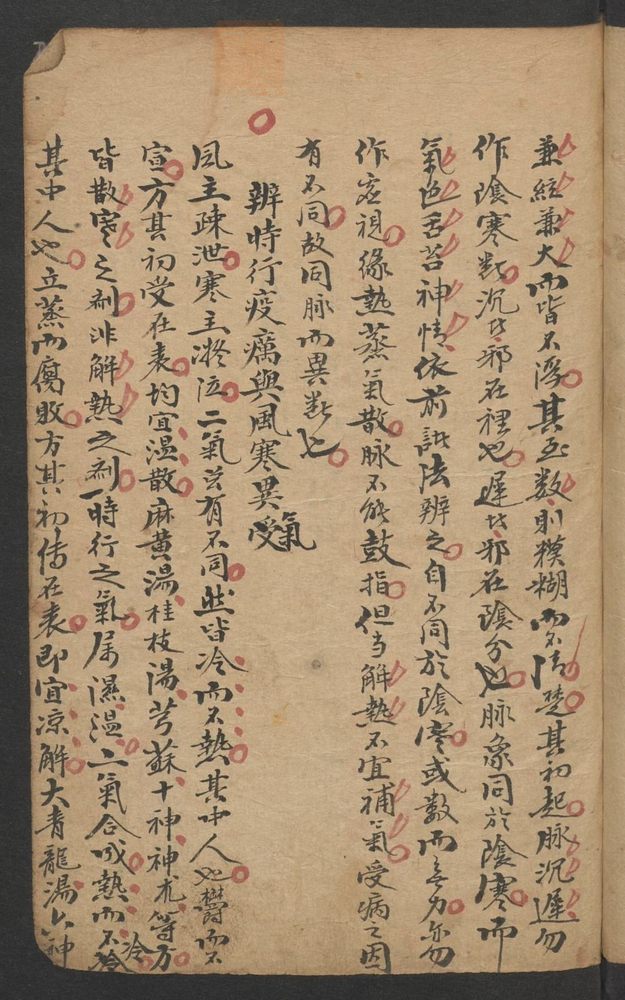 兼絃兼大而皆不浮其至数則模糊而不清楚其初起脉沉遲勿
作陰寒断沉者邪在裡也遲者邪在陰分也脉象同於陰寒而
氣色舌苔神情依前諸法辨之自不同於陰寒或數而無力亦勿
作虛視緣熱蒸氣散脉不能鼓指但当解熱不宜補氣受病之因
有不同故同脉而異断也
辨時行疫癘與風寒異氣受
風主疎泄寒主凝泣二氣虽有不同然皆冷而不熱其中人也欝而不
宣方其初受在表均宜温散麻黄湯桂枝湯芎蘇十神神朮等方
皆散寒之剤非解熱之剤時行之氣属濕温二氣合成熱而不冷
其中人也立蒸而腐敗方其初傳在表即宜凉解大青龍湯六神